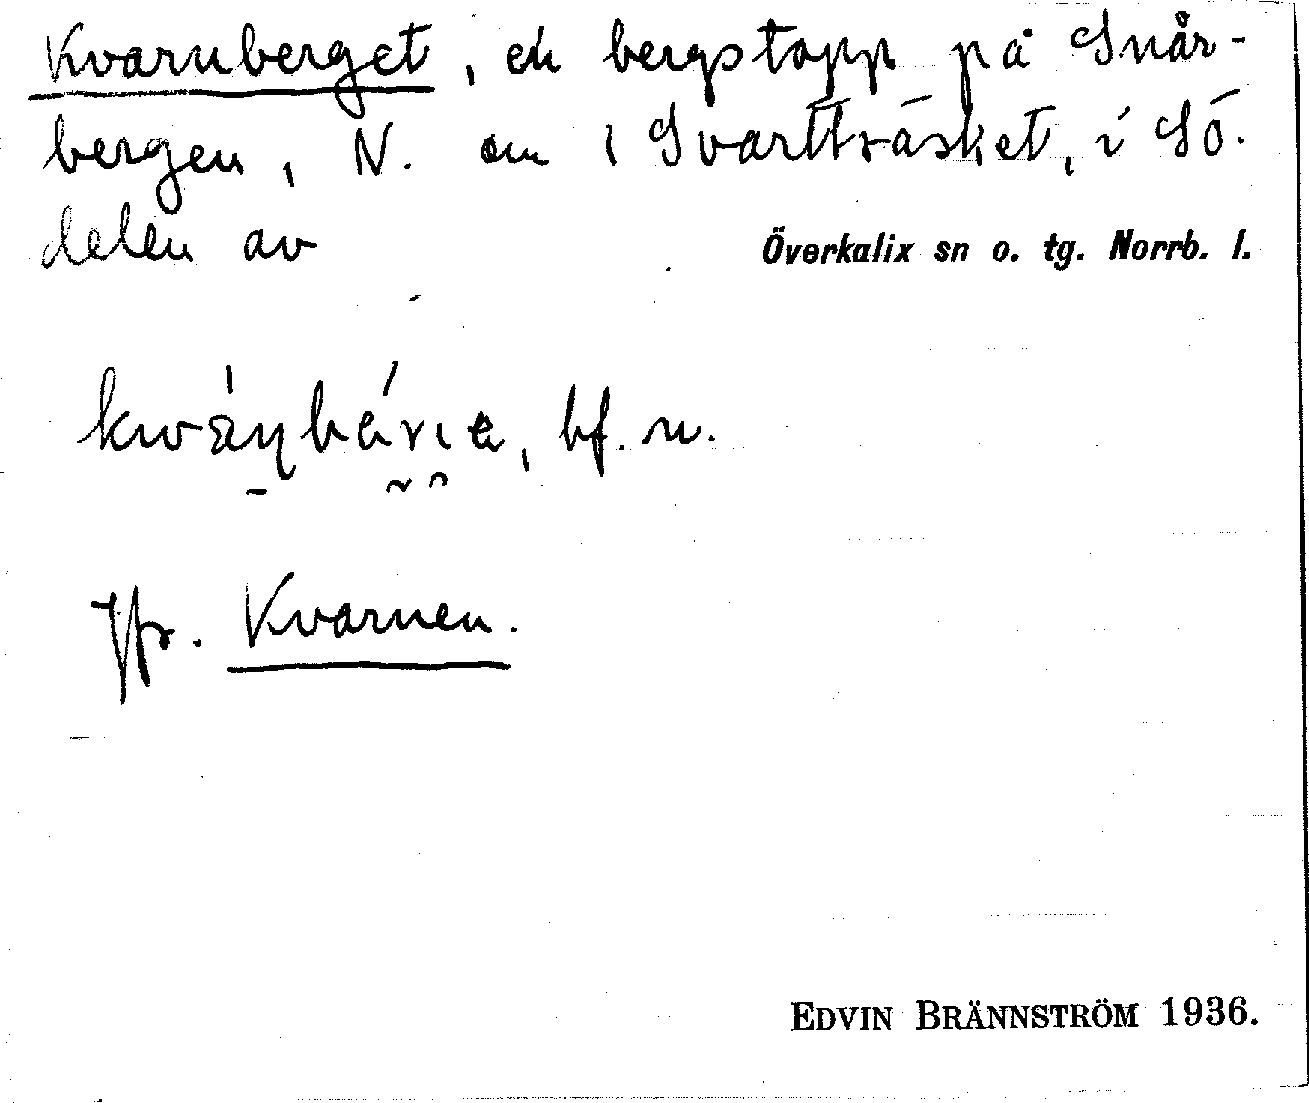 Kvarnberget, en bergstopp på Snår-
bergen, N. om l Svartträsket, i Sö.
delen av Överkalix sn o. tg. Norrb. l.
bf. n.
Jfr. Kvarnen.
EDVIN BRÄNNSTRÖM 1936.